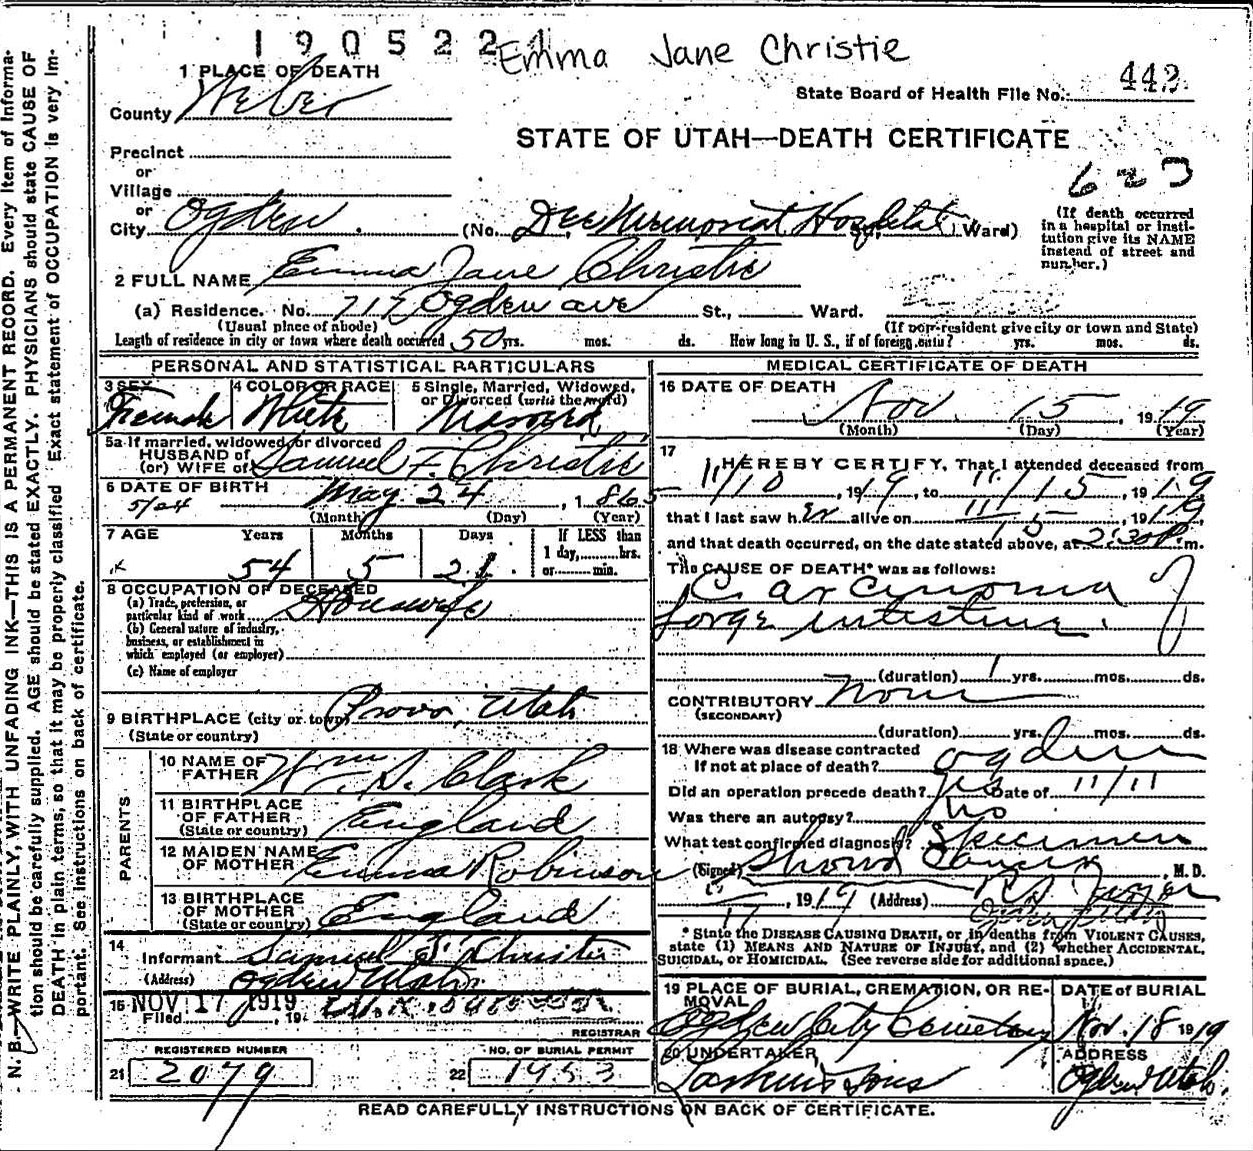 190522
Emma Jane Christie
1 PLACE OF DEATH
County Weber
State Board of Health File No. 442
STATE OF UTAH—DEATH CERTIFICATE
Precinct
or
Village
or
City Ogden (No. Dee Memorial Hospital St., Ward)
623
(If death occurred
in a hospital or insti-
tution give its NAME
instead of street and
number.)
2 FULL NAME Emma Jane Christie
(a) Residence. No. 717 Ogden ave St., Ward.
(Usual place of abode)
(If non-resident give city or town and State)
Length of residence in city or town where death occurred 50 yrs. mos. ds. How long in U. S., if of foreign birth? yrs. mos. ds.
PERSONAL AND STATISTICAL PARTICULARS
3 SEX
Female
4 COLOR OR RACE
White
5 Single, Married, Widowed,
or Divorced (write the word)
Married
5a If married, widowed or divorced
HUSBAND of
(or) WIFE of Samuel F. Christie
6 DATE OF BIRTH May 24, 1865
5/24
(Month) (Day) (Year)
7 AGE Years Months Days If LESS than
1 day, hrs.
or min.
54 5 21
8 OCCUPATION OF DECEASED
(a) Trade, profession, or
particular kind of work Housewife
(b) General nature of industry,
business, or establishment in
which employed (or employer)
(c) Name of employer
9 BIRTHPLACE (city or town) Provo, Utah
(State or country)
PARENTS
10 NAME OF
FATHER Wm. D. Clark
11 BIRTHPLACE
OF FATHER England
(State or country)
12 MAIDEN NAME
OF MOTHER Emma Robinson
13 BIRTHPLACE
OF MOTHER England
(State or country)
14
Informant Samuel F. Christie
(Address) Ogden Utah
15 NOV 17 1919
Filed , 19
REGISTRAR
REGISTERED NUMBER
21 2079
NO. OF BURIAL PERMIT
22 1953
MEDICAL CERTIFICATE OF DEATH
16 DATE OF DEATH
Nov. 15, 1919
(Month) (Day) (Year)
17
I HEREBY CERTIFY, That I attended deceased from
11/10, 1919, to 11/15, 1919
that I last saw her alive on 11/15, 1919,
and that death occurred, on the date stated above, at 2:30 P.m.
The CAUSE OF DEATH* was as follows:
Carcinoma of
large intestine.
(duration) 1 yrs. mos. ds.
CONTRIBUTORY none
(SECONDARY)
(duration) yrs. mos. ds.
18 Where was disease contracted
If not at place of death? Ogden
Did an operation precede death? yes Date of 11/11
Was there an autopsy? No
What test confirmed diagnosis? Specimen
showed Cancer
(Signed) , M. D.
17, 1919 (Address)
* State the DISEASE CAUSING DEATH, or, in deaths from VIOLENT CAUSES,
state (1) MEANS AND NATURE OF INJURY, and (2) whether ACCIDENTAL,
SUICIDAL, or HOMICIDAL. (See reverse side for additional space.)
19 PLACE OF BURIAL, CREMATION, OR RE-
MOVAL
Ogden City Cemetery
DATE of BURIAL
Nov. 18 1919
20 UNDERTAKER
Larkin & Sons
ADDRESS
Ogden Utah.
READ CAREFULLY INSTRUCTIONS ON BACK OF CERTIFICATE.
N. B.—WRITE PLAINLY, WITH UNFADING INK—THIS IS A PERMANENT RECORD. Every item of informa-
tion should be carefully supplied. AGE should be stated EXACTLY. PHYSICIANS should state CAUSE OF
DEATH in plain terms, so that it may be properly classified. Exact statement of OCCUPATION is very im-
portant. See instructions on back of certificate.